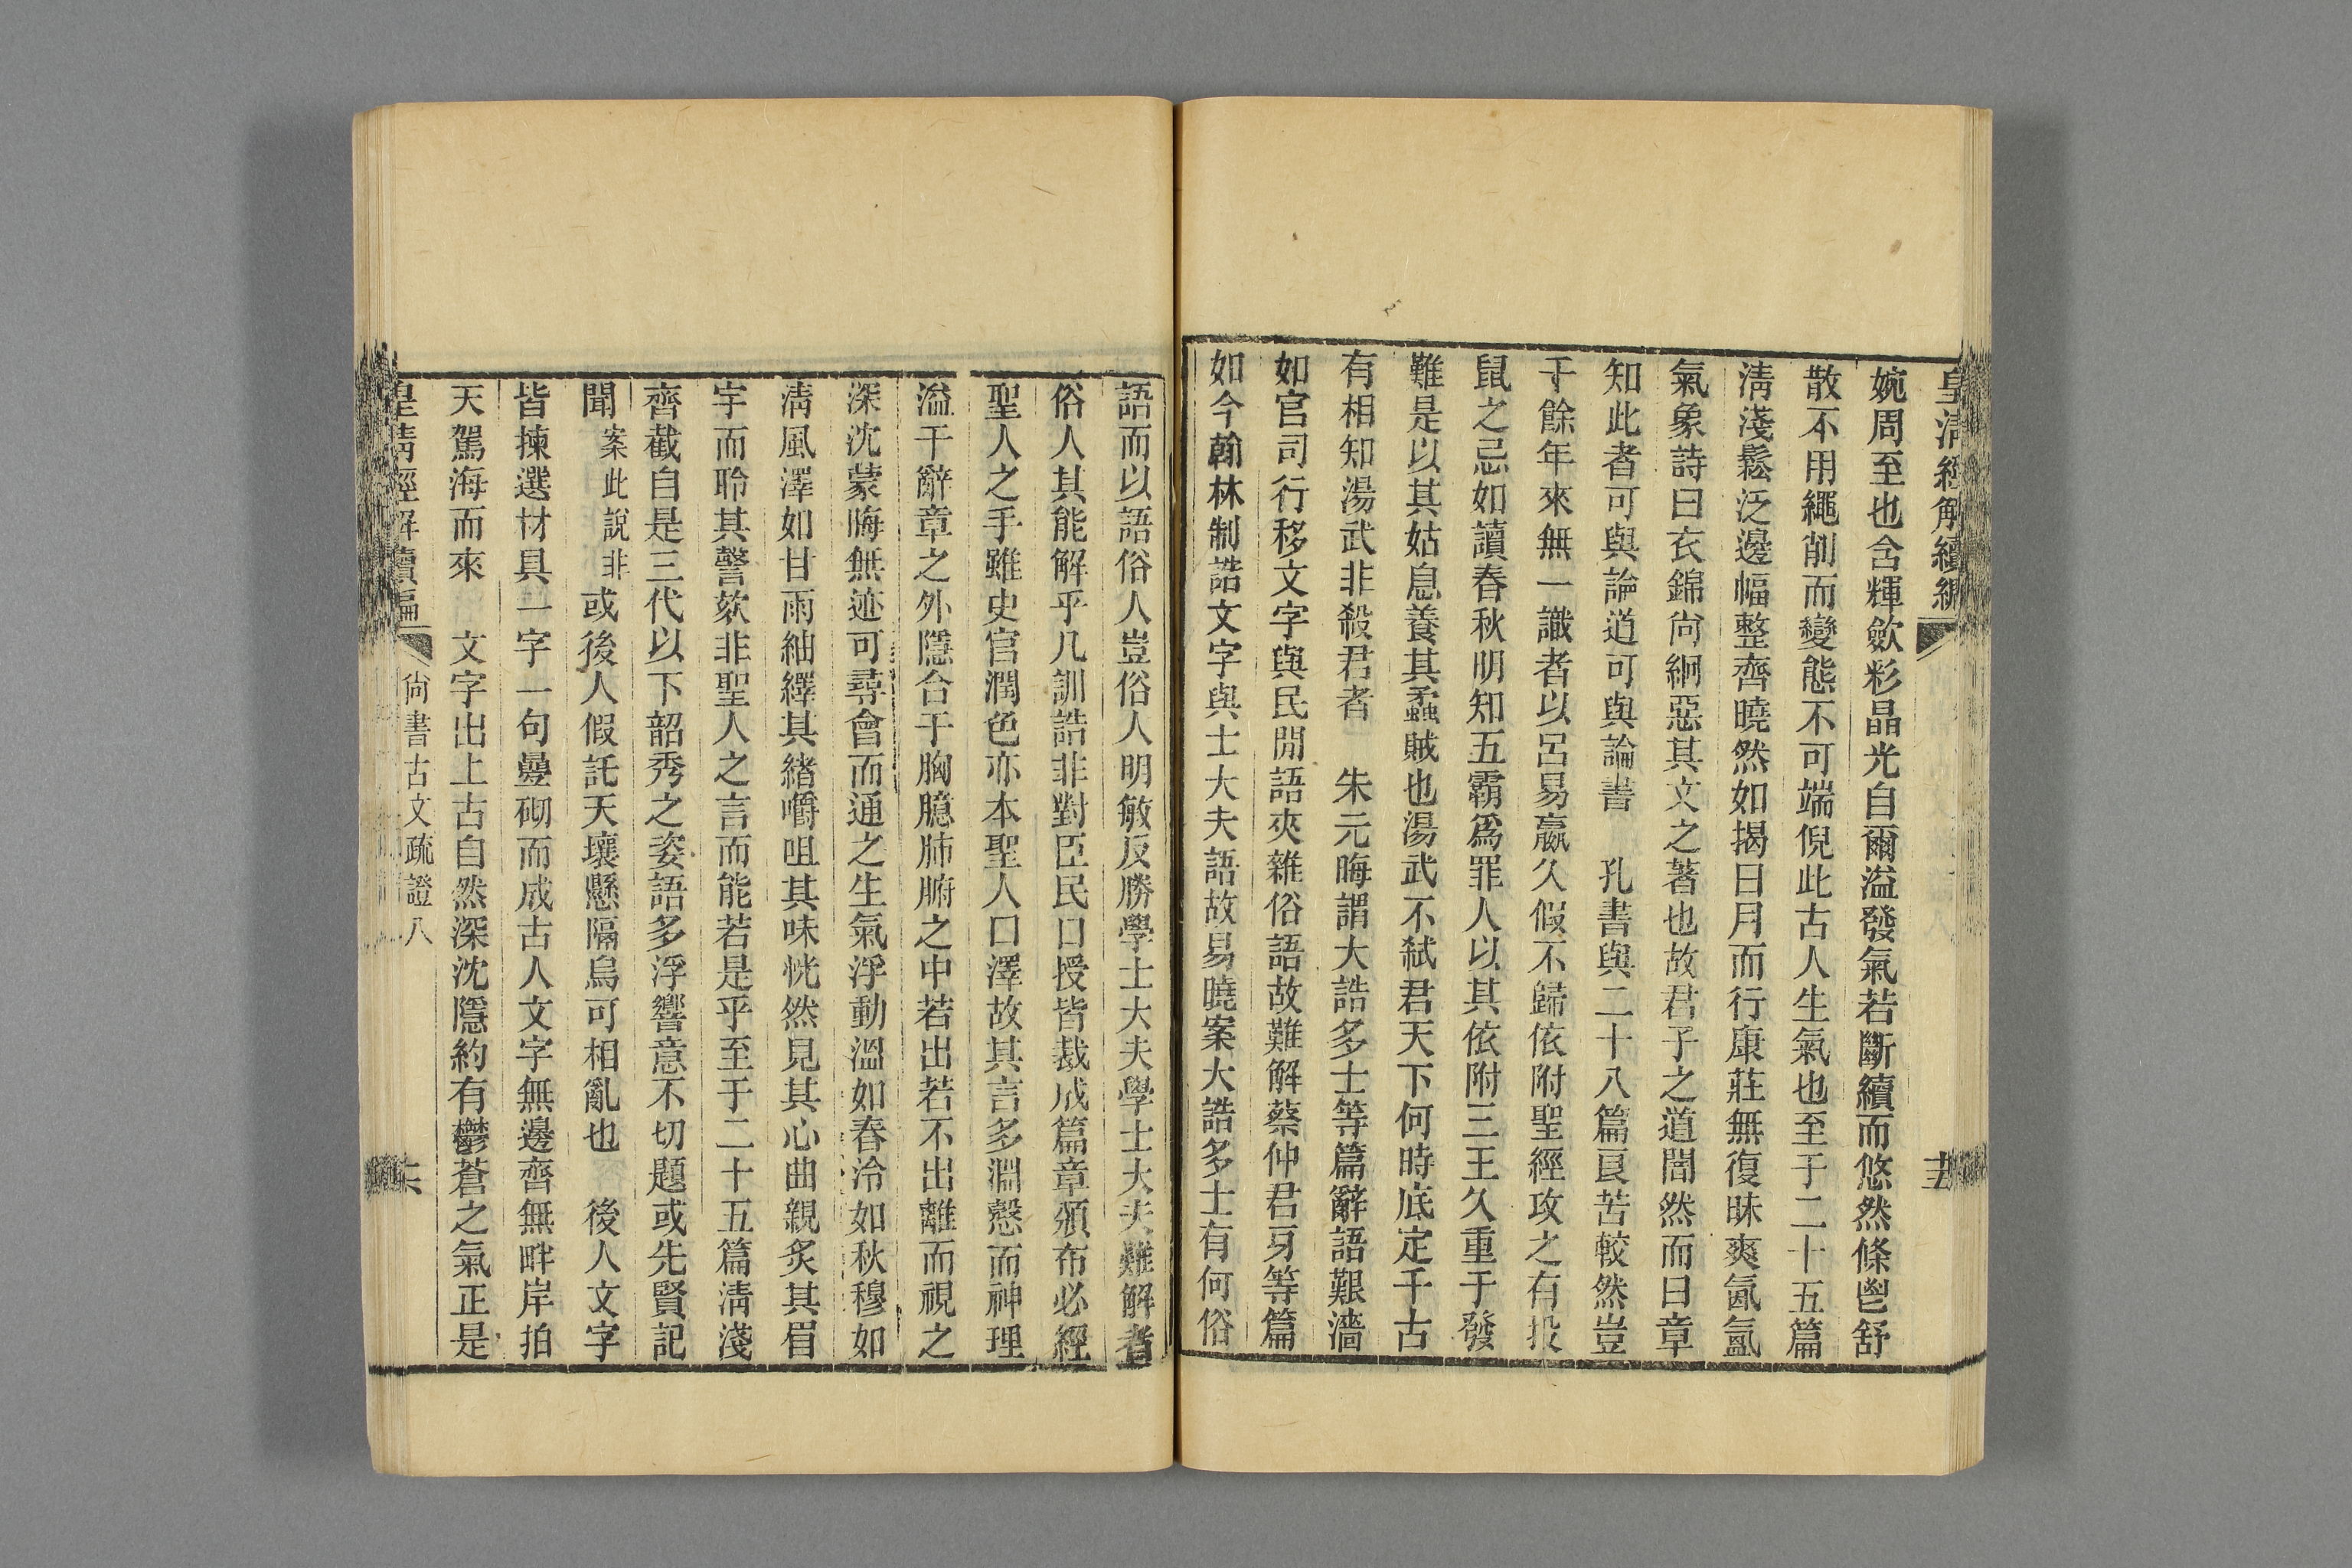 皇清經解續編
婉周至也含輝歛彩晶光自爾溢發氣若斷續而悠然條鬯舒
散不用繩削而變態不可端倪此古人生氣也至于二十五篇
淸淺鬆泛邊幅整齊曉然如揭日月而行康莊無復昧爽氤氳
氣象詩曰衣錦尙絅惡其文之著也故君子之道闇然而日章
知此者可與論道可與論書　孔書與二十八篇良苦較然豈
千餘年來無一識者以呂易嬴久假不歸依附聖經攻之有投
鼠之忌如讀春秋明知五霸爲罪人以其依附三王久重于發
難是以其姑息養其蟊賊也湯武不弑君天下何時底定千古
有相知湯武非殺君者　朱元晦謂大誥多士等篇辭語艱濇
如官司行移文字與民閒語夾雜俗語故難解蔡仲君牙等篇
如今翰林制誥文字與士大夫語故易曉案大誥多士有何俗
語而以語俗人豈俗人明敏反勝學士大夫學士大夫難解者
俗人其能解乎凡訓誥非對臣民口授皆裁成篇章頒布必經
聖人之手雖史官潤色亦本聖人口澤故其言多淵慤而神理
溢于辭章之外隱合于胸臆肺腑之中若出若不出離而視之
深沈蒙晦無迹可尋會而通之生氣浮動溫如春泠如秋穆如
淸風澤如甘雨紬繹其緖嚼咀其味恍然見其心曲親炙其眉
宇而聆其謦欬非聖人之言而能若是乎至于二十五篇淸淺
齊截自是三代以下韶秀之姿語多浮響意不切題或先賢記
聞案此說非或後人假託天壤懸隔烏可相亂也　後人文字
皆揀選材具一字一句疊砌而成古人文字無邊齊無畔岸拍
天駕海而來　文字出上古自然深沈隱約有鬱蒼之氣正是
皇淸經解續編　尙書古文疏證八